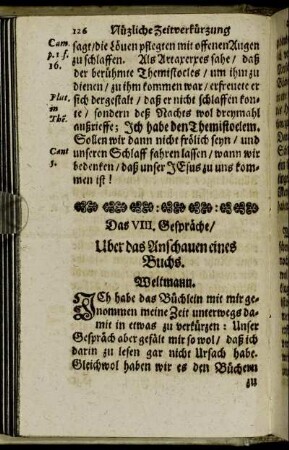 126 Nüzliche Zeitverkürzung
Cam. p. 1. f. 16.
sagt/die Löuen pflegten mit offenen Augen
zu schlaffen. Als Artaxerxes sahe/ daß
der berühmte Themistocles/ um ihm zu
dienen/ zu ihm kommen war/ erfreuete er
Plut. in Thé.
sich dergestalt/ daß er nicht schlaffen kon-
te/ sondern deß Nachts wol dreymahl
außrieffe; Ich habe den Themistoclem.
Sollen wir dann nicht frölich seyn/ und
Cant 5.
unseren Schlaff fahren lassen/ wann wir
bedenken/ daß unser JEsus zu uns kom-
men ist!
Das VIII. Gespräche/
Uber das Anschauen eines
Buchs.
Weltmann.
ICh habe das Büchlein mit mir ge-
nommen meine Zeit unterwegs da-
mit in etwas zu verkürzen: Unser
Gespräch aber gefält mir so wol/ daß ich
darin zu lesen gar nicht Ursach habe.
Gleichwol haben wir es den Büchern
zu